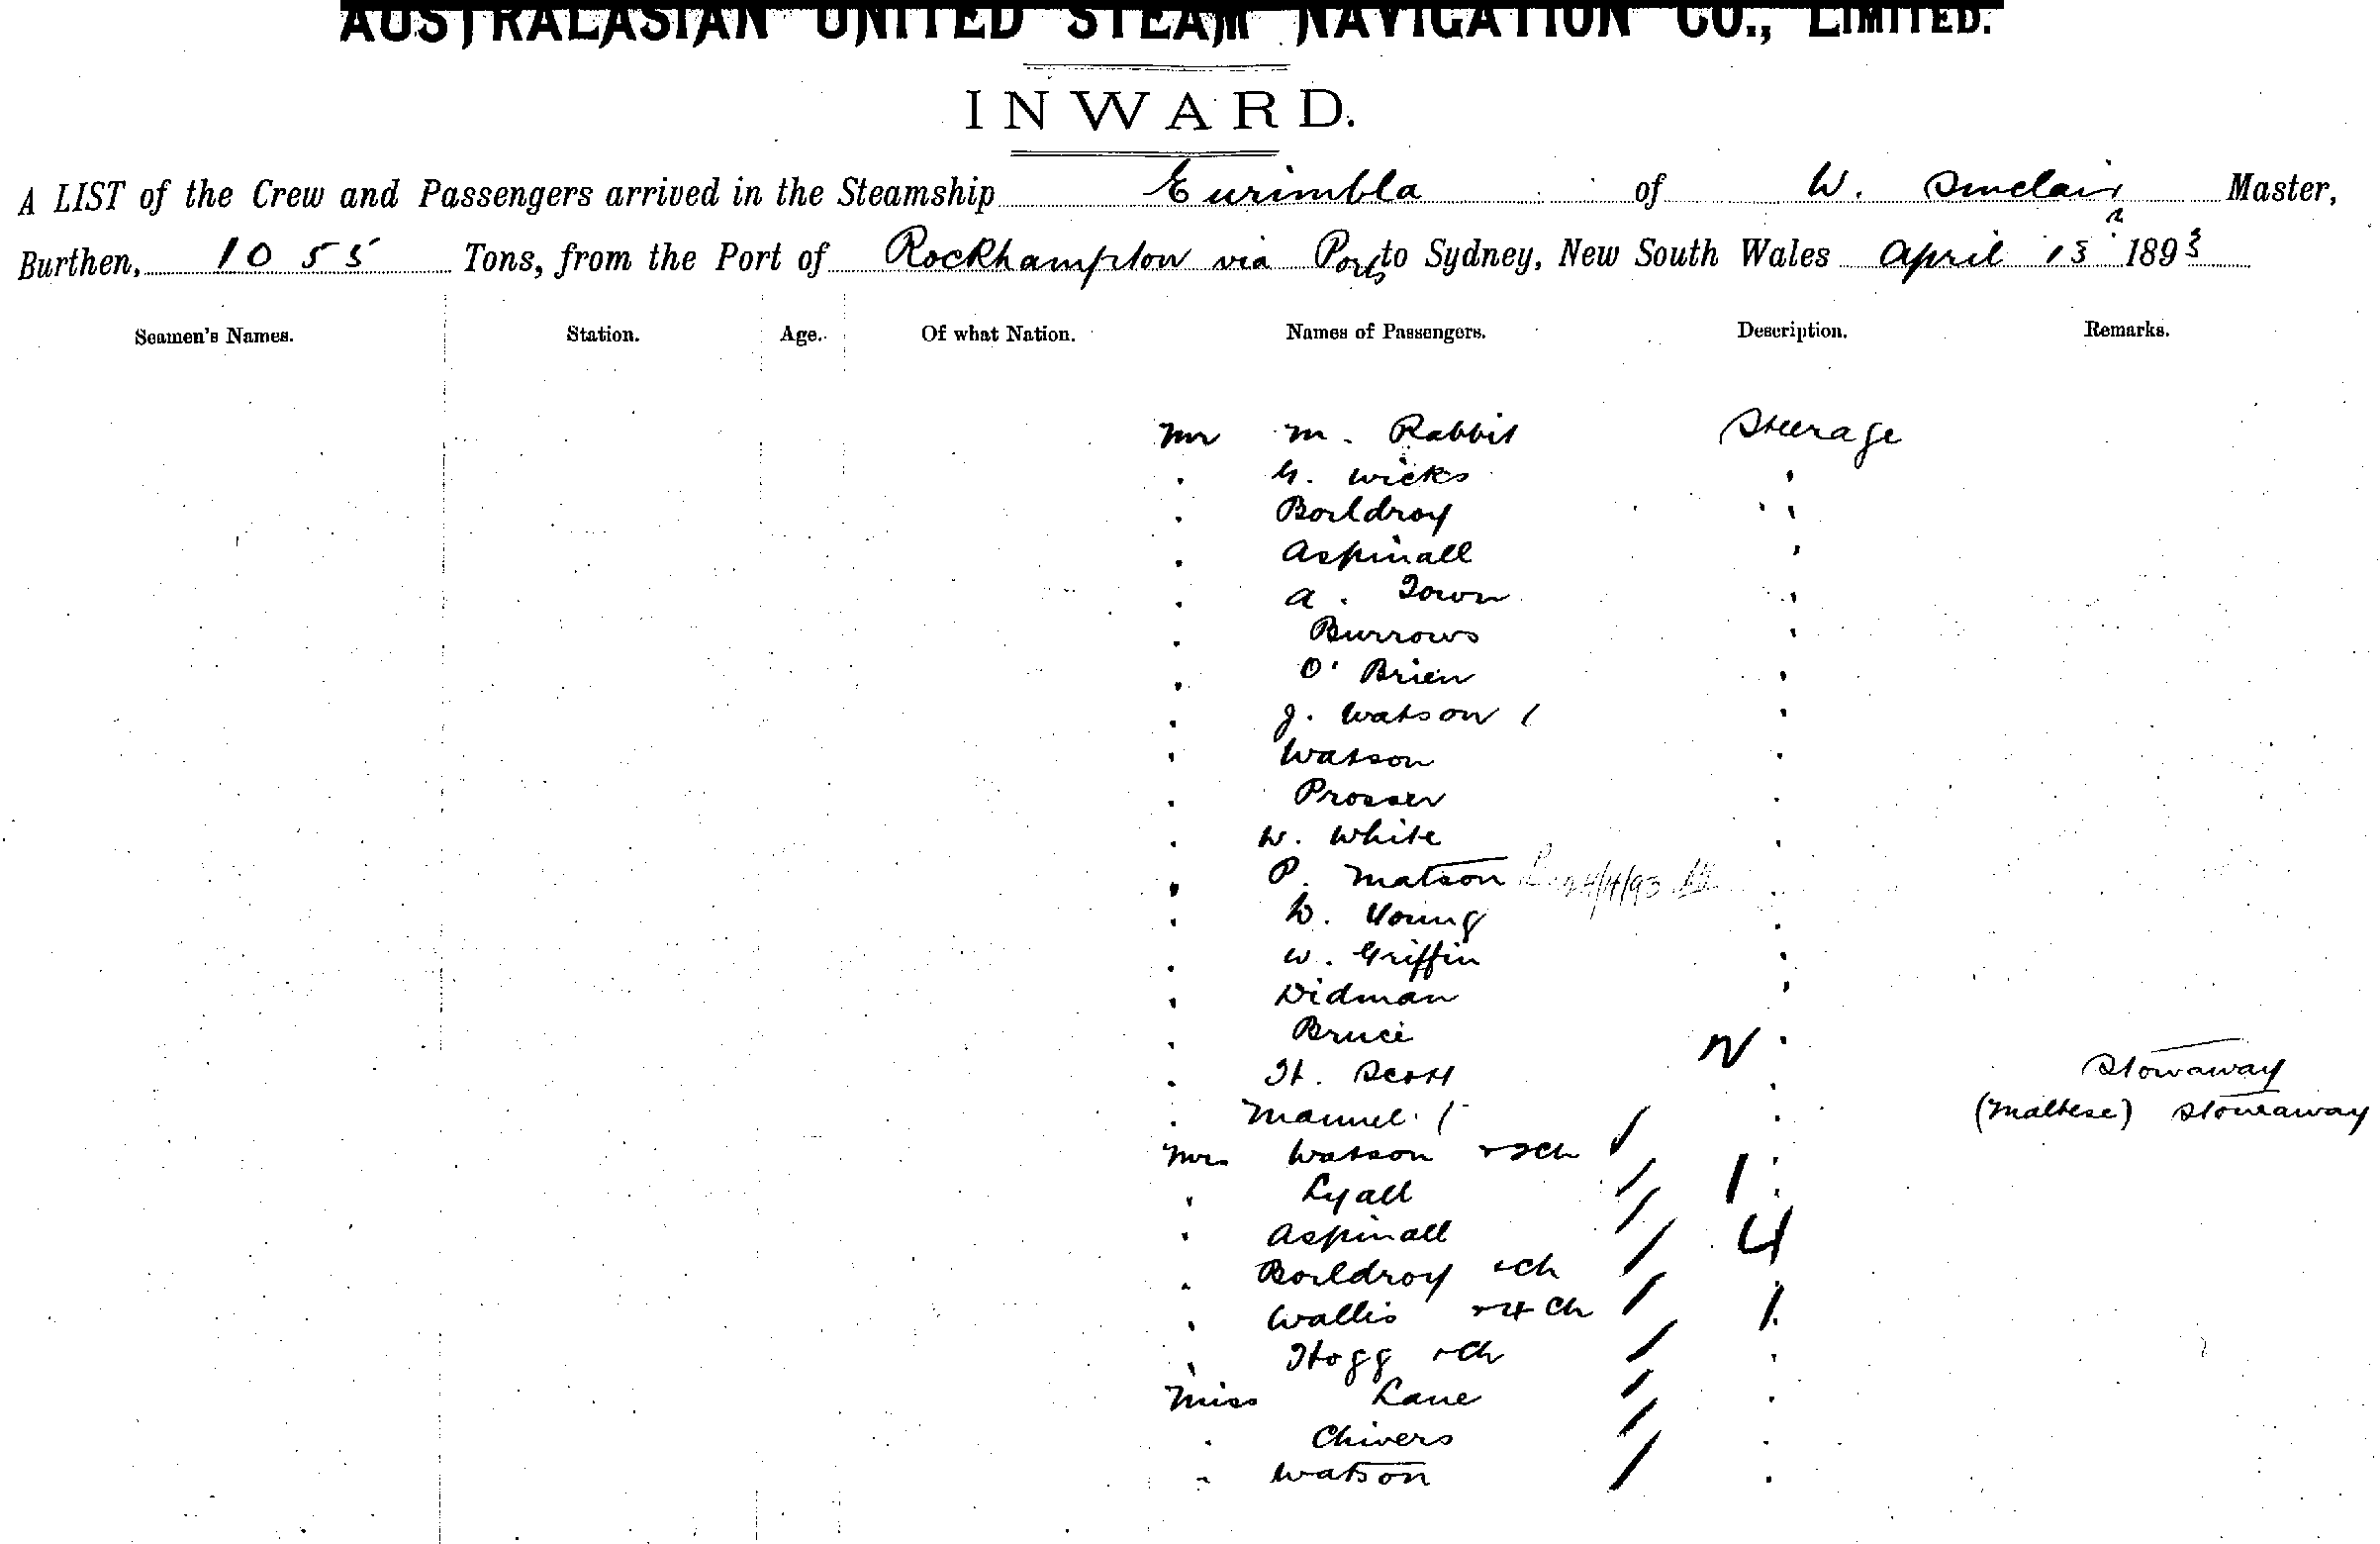 AUSTRALASIAN UNITED STEAM NAVIGATION CO., LIMITED.
INWARD.
A LIST of the Crew and Passengers arrived in the Steamship Eurimbla of W. Sinclair Master,
Burthen, 1055 Tons, from the Port of Rockhampton via Ports to Sydney, New South Wales April 13th 1893
Seamen's Names. Station. Age. Of what Nation. Names of Passengers. Description. Remarks.
Mr M. Rabbit Steerage
G. Wicks
Boildroy
Aspinall
A. Town
Burrows
O'Brien
J. Watson
Watson
Prosser
W. White
P. Matson 24/4/93
W. Young
W. Griffin
Didman
Bruce N
H. Scott Stowaway
Manuel (Maltese) Stowaway
Mrs Watson + 2 ch
Lyall 1
Aspinall 4
Boildroy + ch
Wallis + 4 ch 1
Hogg + ch
Miss Lane
Chivers
Watson